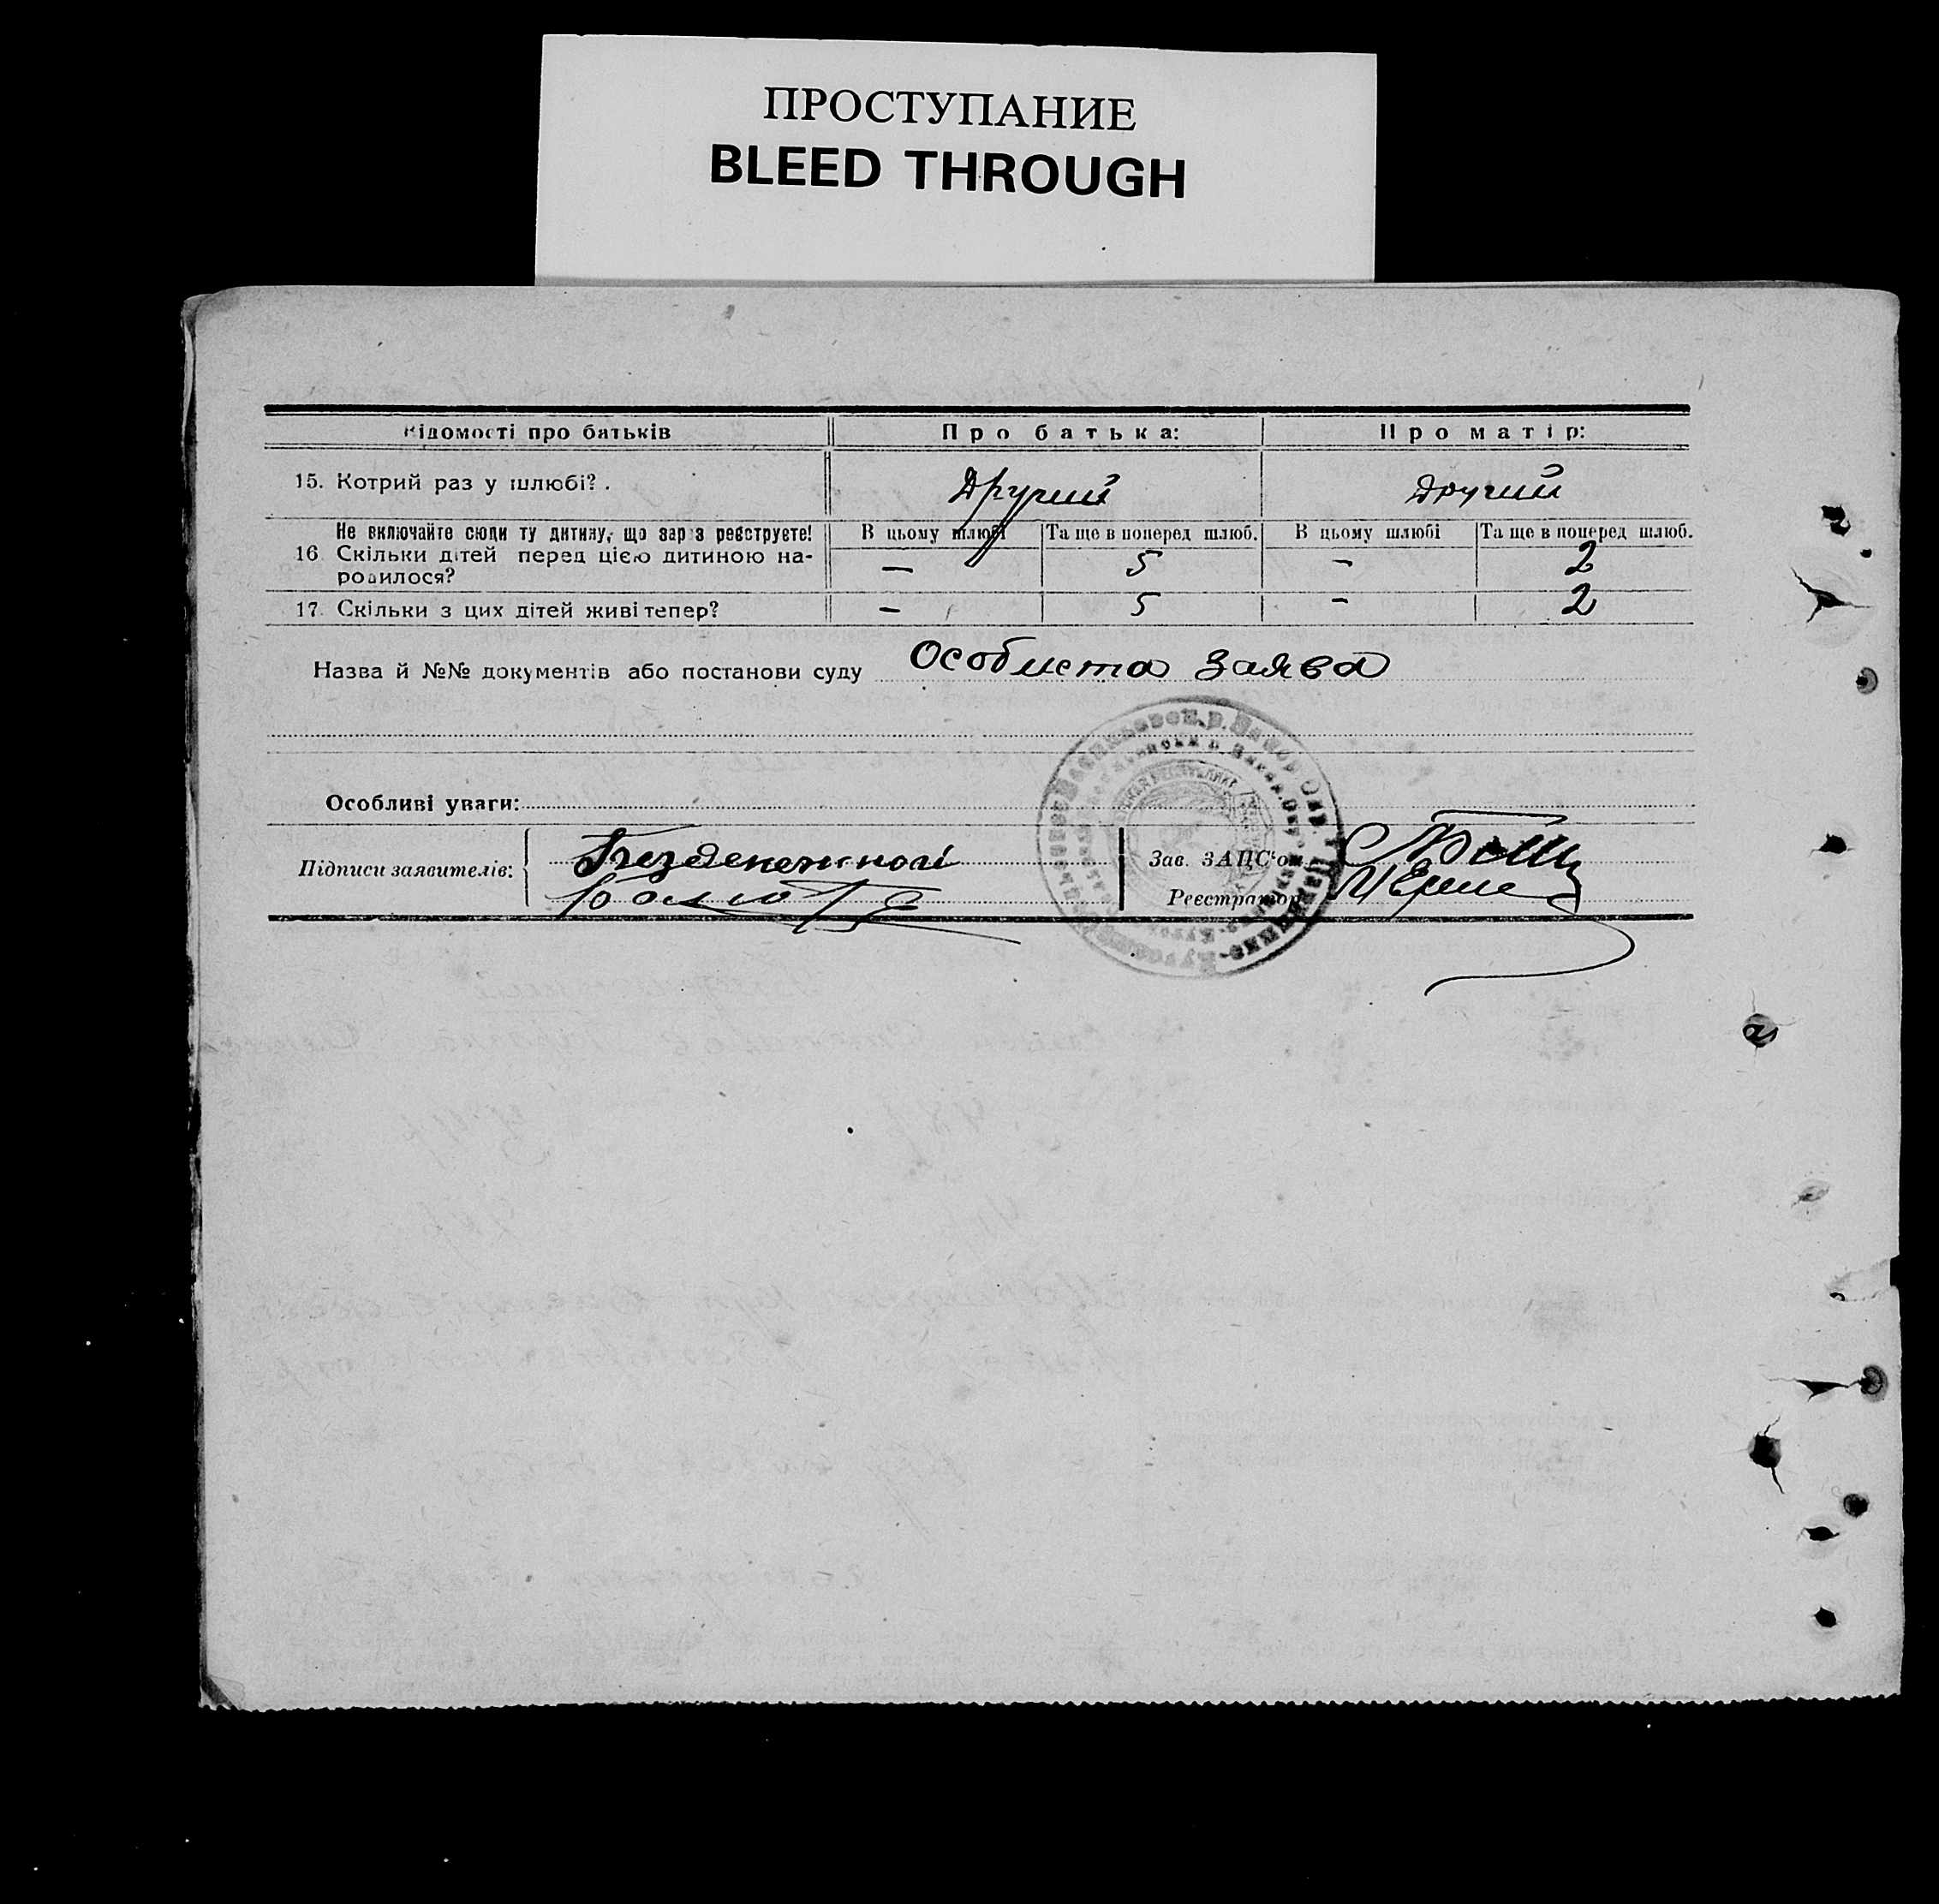 ПРОСТУПАНИЕ
BLEED THROUGH
Відомості про батьків Про батька: Про матір:
15. Котрий раз у шлюбі? . Другий Другий
Не включайте сюди ту дитину, що зараз реєструєте! В цьому шлюбі Та ще в поперед шлюб. В цьому шлюбі Та ще в поперед шлюб.
16. Скільки дітей перед цією дитиною на- — 5 — 2
родилося?
17. Скільки з цих дітей живі тепер? — 5 — 2
Назва й №№ документів або постанови суду Особиста заява
Особливі уваги:
Підписи заявителів: Зав. ЗАГС'ом
Реєстратор